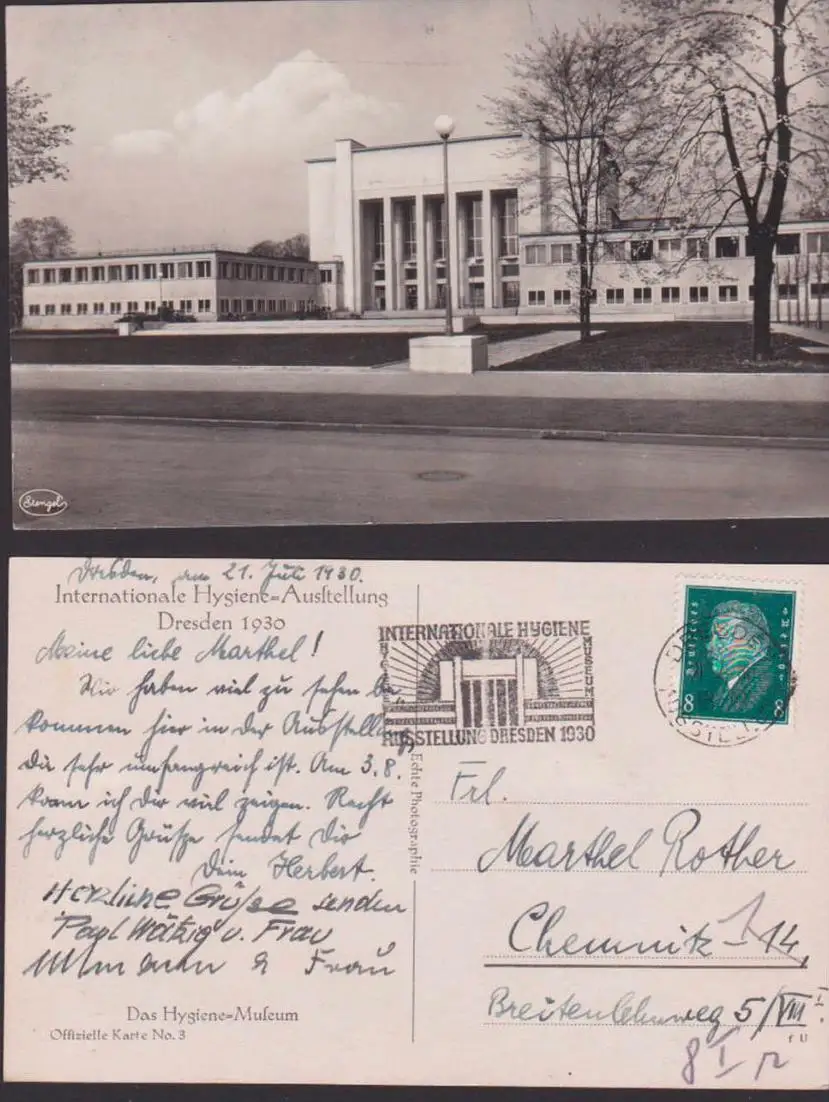 Stengel
Dresden, am 21. Juli 1930.
Internationale Hygiene=Ausſtellung
Dresden 1930
Meine liebe Marthel!
Wir haben viel zu sehen be-
kommen hier in der Ausstellung,
die sehr umfangreich ist. Am 3.8.
kann ich Dir viel zeigen. Recht
herzliche Grüße sendet Dir
Dein Herbert.
Herzliche Grüße senden
Paul Wätzig u. Frau
Frau
Das Hygiene=Muſeum
Offizielle Karte No. 3
Echte Photographie
INTERNATIONALE HYGIENE
HYGIENE
MUSEUM
AUSSTELLUNG DRESDEN 1930
Deutsches
Reich
8 8
DRESDEN
AUSSTELL
Frl.
Marthel Rother
Chemnitz 14,
Breitenlehnweg 5/VIII I.
f U
8 I